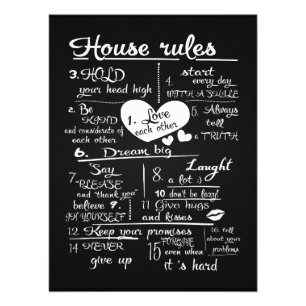 House rules
3. HOLD
your head high
4. start
every day
WITH A SMILE
2. Be
KIND
and considerate of
each other
1. Love
each other
5. Always
tell
a TRUTH
6. Dream big
7 Say
"PLEASE"
and "thank you"
Laugh
8. a lot :)
10. don't be lazy!
believe 9.
IN YOURSELF
11. Give hugs
and kisses
12. Keep your promises
16. tell
about your
problems
14 NEVER
give up
15 FORGIVE
even when
it's hard